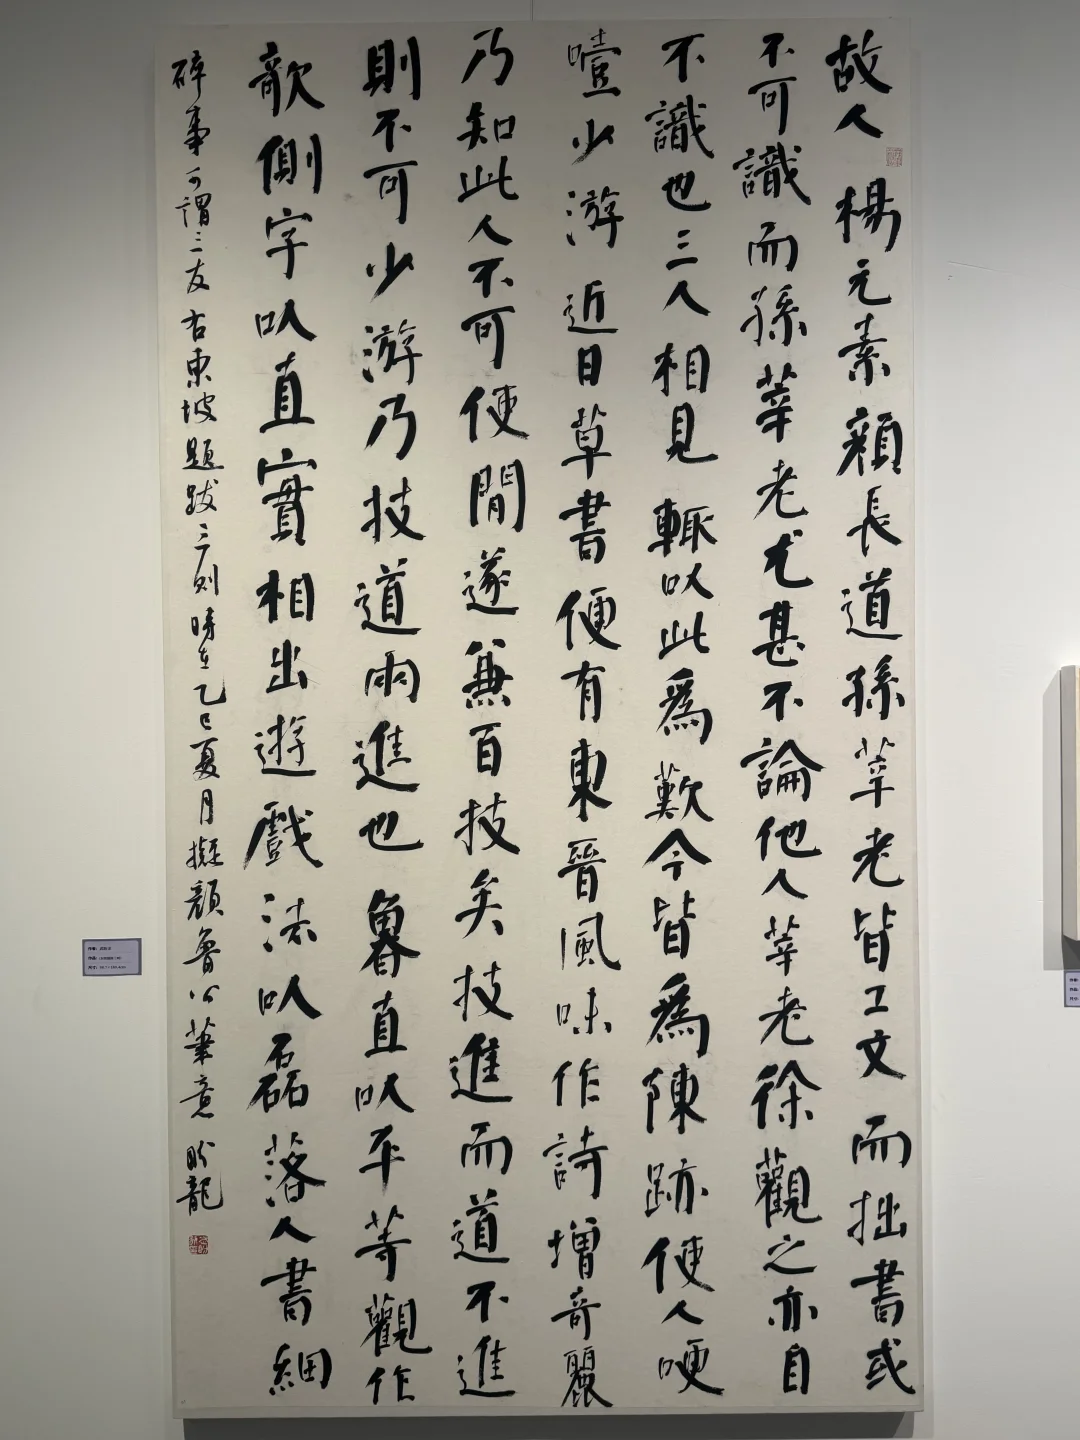 故人楊元素顏長道孫莘老皆工文而拙書或
不可識而孫莘老尤甚不論他人莘老徐觀之亦自
不識也三人相見輒以此為歎今皆為陳跡使人哽
噎少游近日草書便有東晉風味作詩增奇麗
乃知此人不可使閒遂兼百技矣技進而道不進
則不可少游乃技道兩進也魯直以平等觀作
欹側字以真實相出遊戲法以磊落人書細
碎事可謂三友右東坡題跋三則時在乙巳夏月擬顏魯公筆意 龍